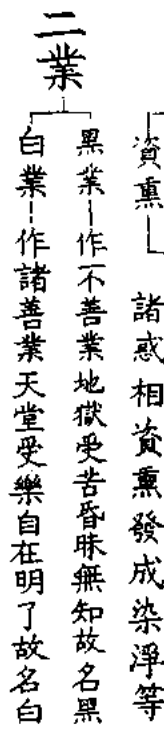 資熏 諸惑相資熏發成染淨等
二業
黑業 作不善業地獄受苦昏昧無知故名黑
白業 作諸善業天堂受樂自在明了故名白